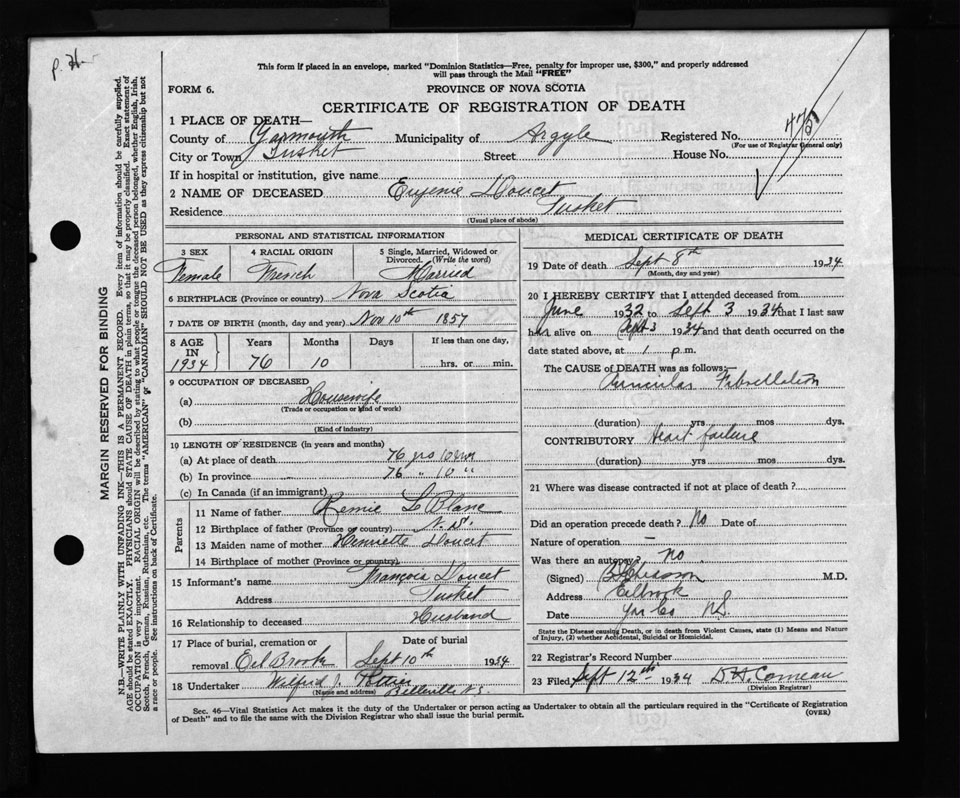 p.
This form if placed in an envelope, marked "Dominion Statistics—Free, penalty for improper use, $300," and properly addressed
will pass through the Mail "FREE"
FORM 6.
PROVINCE OF NOVA SCOTIA
CERTIFICATE OF REGISTRATION OF DEATH
1 PLACE OF DEATH—
County of Yarmouth Municipality of Argyle Registered No. 475
(For use of Registrar General only)
City or Town Tusket Street House No.
If in hospital or institution, give name
2 NAME OF DECEASED Eugenie Doucet
Residence Tusket
(Usual place of abode)
PERSONAL AND STATISTICAL INFORMATION
3 SEX 4 RACIAL ORIGIN 5 Single, Married, Widowed or Divorced. (Write the word)
Female French Married
6 BIRTHPLACE (Province or country) Nova Scotia
7 DATE OF BIRTH (month, day and year) Nov 10th 1857
8 AGE IN Years Months Days If less than one day,
1934 76 10 hrs. or min.
9 OCCUPATION OF DECEASED
(a) Housewife
(Trade or occupation or kind of work)
(b)
(Kind of industry)
10 LENGTH OF RESIDENCE (in years and months)
(a) At place of death 76 yrs 10 mos
(b) In province 76 " 10 "
(c) In Canada (if an immigrant)
Parents
11 Name of father Remie LeBlanc
12 Birthplace of father (Province or country) N.S.
13 Maiden name of mother Henriette Doucet
14 Birthplace of mother (Province or country)
15 Informant's name François Doucet
Address Tusket
16 Relationship to deceased Husband
17 Place of burial, cremation or Date of burial
removal Eel Brook Sept 10th 1934
18 Undertaker Wilfred J. Pottier
(Name and address) Belleville N.S.
MEDICAL CERTIFICATE OF DEATH
19 Date of death Sept 8th 1934
(Month, day and year)
20 I HEREBY CERTIFY that I attended deceased from
June 1932 to Sept 3 1934 that I last saw
her alive on Sept 3 1934 and that death occurred on the
date stated above, at 1 p.m.
The CAUSE of DEATH was as follows:—
Auricular Fibrillation
(duration) yrs mos dys.
CONTRIBUTORY Heart failure
(duration) yrs mos dys.
21 Where was disease contracted if not at place of death?
Did an operation precede death? No Date of
Nature of operation —
Was there an autopsy? No.
(Signed) M.D.
Address Eelbrook
Date Yar Co NS
State the Disease causing Death, or in death from Violent Causes, state (1) Means and Nature
of Injury, (2) whether Accidental, Suicidal or Homicidal.
22 Registrar's Record Number
23 Filed Sept 12th 1934 D H. Comeau
(Division Registrar)
Sec. 46—Vital Statistics Act makes it the duty of the Undertaker or person acting as Undertaker to obtain all the particulars required in the "Certificate of Registration
of Death" and to file the same with the Division Registrar who shall issue the burial permit. (OVER)
MARGIN RESERVED FOR BINDING
N.B.—WRITE PLAINLY WITH UNFADING INK—THIS IS A PERMANENT RECORD. Every item of information should be carefully supplied.
AGE should be stated EXACTLY. PHYSICIANS should STATE CAUSE OF DEATH in plain terms, so that it may be properly classified. Exact statement of
OCCUPATION is very important. RACIAL ORIGIN will be described by stating to what people or tongue the deceased person belonged, whether English, Irish,
Scotch, French, German, Russian, Ruthenian, etc. The terms "AMERICAN" or "CANADIAN" SHOULD NOT BE USED as they express citizenship but not
a race or people. See instructions on back of Certificate.